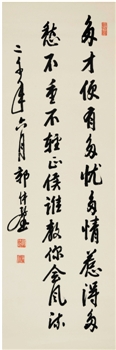 多才便有多忧多情惹得多
愁不重不轻正候谁教你会风流
二千年六月